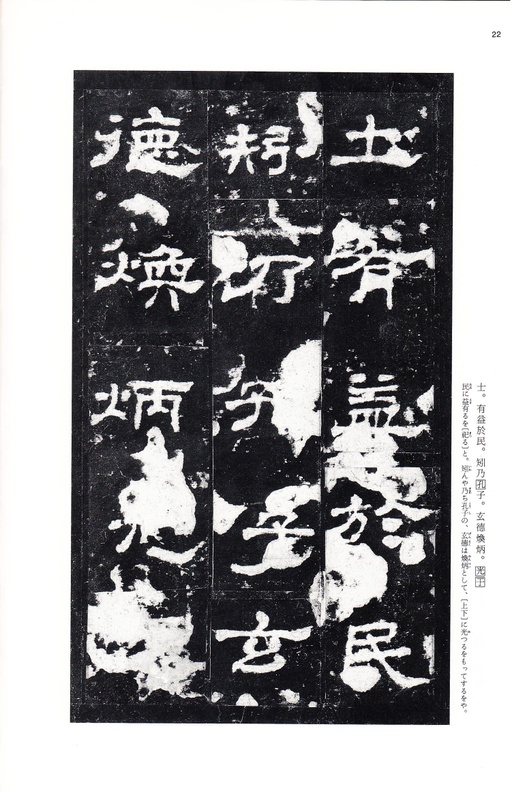 22
士有益於民
矧乃孔子玄
德煥炳光
士。有益於民。矧乃孔子。玄德煥炳。光于
民に益有るを〔祀る〕と。矧んや乃ち孔子の、玄德は煥炳として、〔上下〕に光つるをもってするをや。